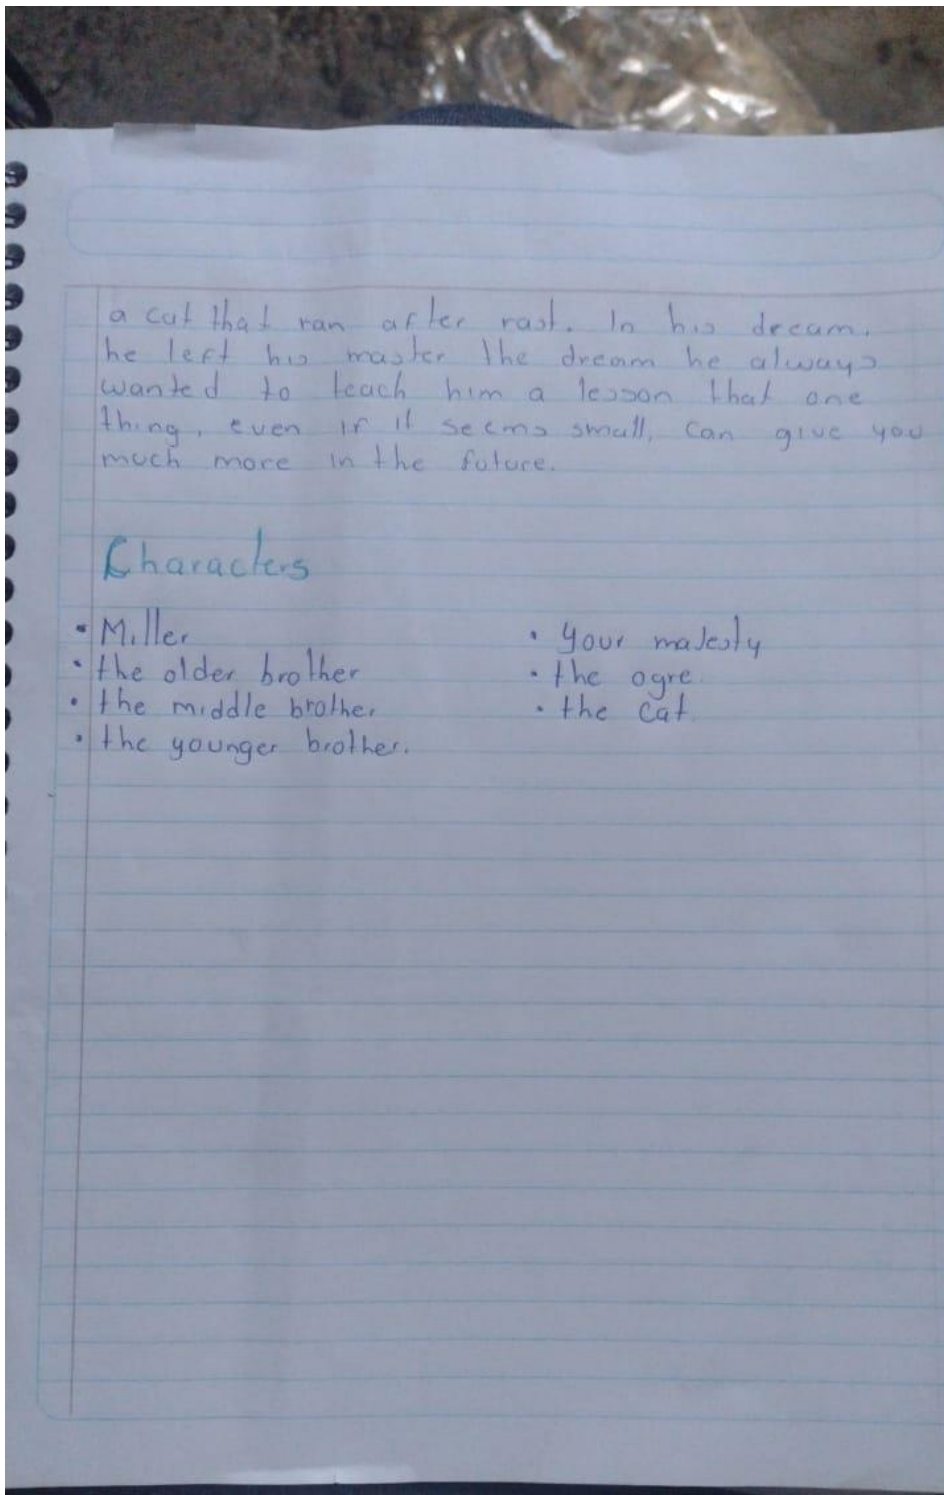 a cat that ran after rast. In his dream.
he left his master the dream he always
wanted to teach him a lesson that one
thing, even if it seems small, can give you
much more in the future.
Characters
• Miller
• the older brother
• the middle brother
• the younger brother.
• Your majesty
• the ogre.
• the cat.